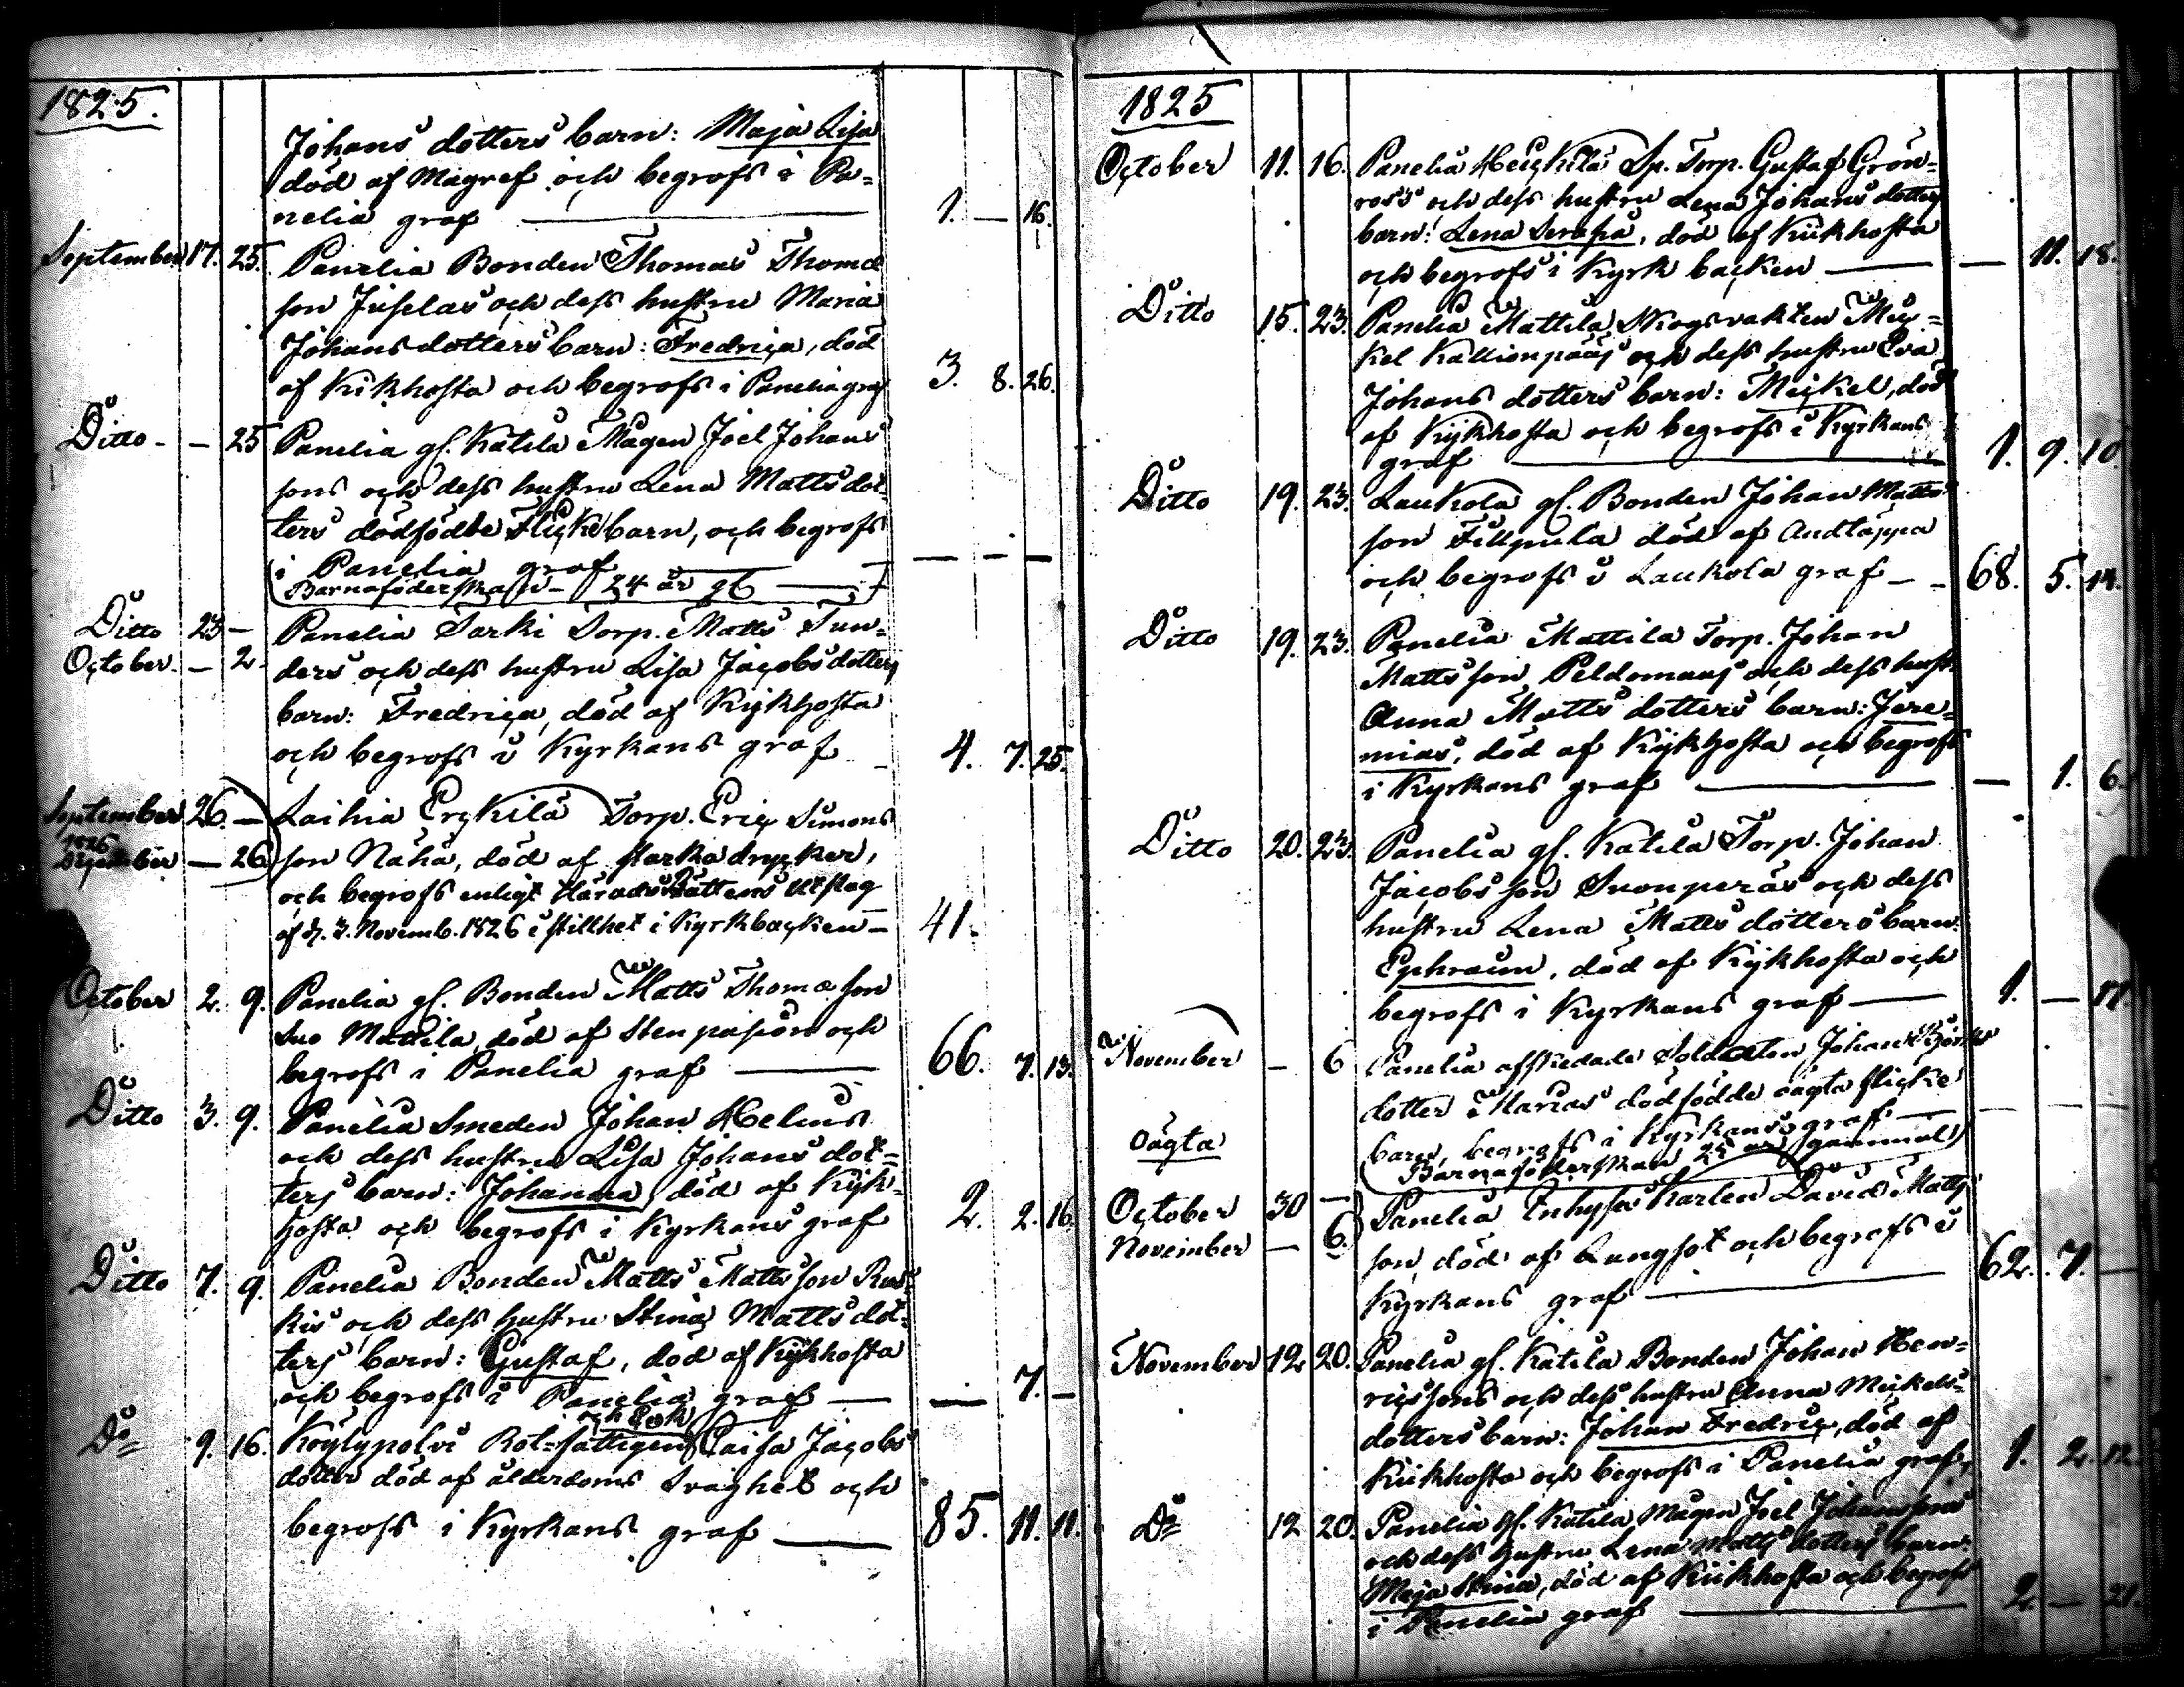 1825.
Johans dotters barn: Maja Lisa
död af Magref och begrofs i Pa=
nelia graf — 1. — 16.
September 17. 25. Panelia Bonden Thomas Thomæ
son Juselas och dess hustru Maria
Johansdotters barn: Fredrica, död
af Kikhosta och begrofs i Panelia graf 3. 8. 26.
Ditto - — 25 Panelia gl. Katila Mågen Joel Johans
sons och dess hustru Lena Matts dot=
ters dödfödde Flicke barn, och begrofs
i Panelia graf — — —
Barnaföderskan — 24 år gl —
Ditto 23 — Panelia Sarki Torp. Matts Sun=
October — 2. ders och dess hustru Lisa Jacobsdotters
barn: Fredrica, död af Kikhosta
och begrofs i Kyrkans graf — 4. 7. 25.
September 26. — Laihia Erckilä Torp. Eric Simons
1826
December — 26 son Näha, död af starka drycker,
och begrofs enligt HäradsRättens utslag
af d. 3. Novemb. 1826 i stillhet i Kyrkbacken — 41.
October 2. 9. Panelia gl. Bonden Matts Thomæ son
Suo Mattila, död af Sten passion och
begrofs i Panelia graf — 66. 7. 13.
Ditto 3. 9. Panelia Smeden Johan Helins
och dess hustru Lisa Johans dot=
ters barn: Johanna, död af Kik=
hosta och begrofs i Kyrkans graf 2. 2. 16.
Ditto 7. 9. Panelia Bonden Matts Mattsson Rus=
kis och dess hustru Stina Matts dot=
ters barn: Gustaf, död af Kikhosta
och begrofs i Panelia graf — — 7. —
och Enk.
Do 9. 16. Köylypolvi Rot=fattigen Caisa Jacobs
dotter död af ålderdoms svaghet och
begrofs i Kyrkans graf — 85. 11. 11.
1825
October 11. 16. Panelia Heickilä Sp. Torp. Gustaf Grön=
roos och dess hustru Lena Johans dotters
barn: Lena Serafia, död af Kikhosta
och begrofs i Kyrk backen — — 11. 18.
Ditto 15. 23. Panelia Mattila Skogsvakten Mic=
kel Kallionpääs och dess hustru Eva
Johans dotters barn: Mickel, död
af Kikhosta och begrofs i Kyrkans
graf — 1. 9. 10.
Ditto 19. 23. Laukola gl. Bonden Johan Matts
son Filppula död af Andtäppa
och begrofs i Laukola graf — 68. 5. 14.
Ditto 19. 23. Panelia Mattila Torp. Johan
Mattsson Peldomaas och dess hustr.
Anna Matts dotters barn: Jere=
mias, död af Kikhosta och begrofs
i Kyrkans graf — — 1. 6.
Ditto 20. 23. Panelia gl. Katila Torp. Johan
Jacobsson Suonperäs och dess
hustru Lena Matts dotters barn:
Ephraim, död af Kikhosta och
begrofs i Kyrkans graf — 1. — 17.
November — 6 Panelia afskedade Soldaten Johan
dotter Marias dödfödde oägta flicke
oägta barn, begrofs i Kyrkans graf —
Barnaföderskan 25 år gammal
October 30 — Panelia Inhyses Karlen David Matts
November — 6. son, död af Lungsot och begrofs i
Kyrkans graf — 62. 7. —
November 12. 20. Panelia gl. Katila Bonden Johan Hen=
ricssons och dess hustru Anna Mickels=
dotters barn: Johan Fredric, död af
Kikhosta och begrofs i Panelia graf, 1. 2. 12.
Do 12 20. Panelia gl. Katila Mågen Joel Johanssons
och dess hustru Lena Matts dotters barn:
Maja Stina, död af Kikhosta och begrofs
i Panelia graf — 2. — 21.